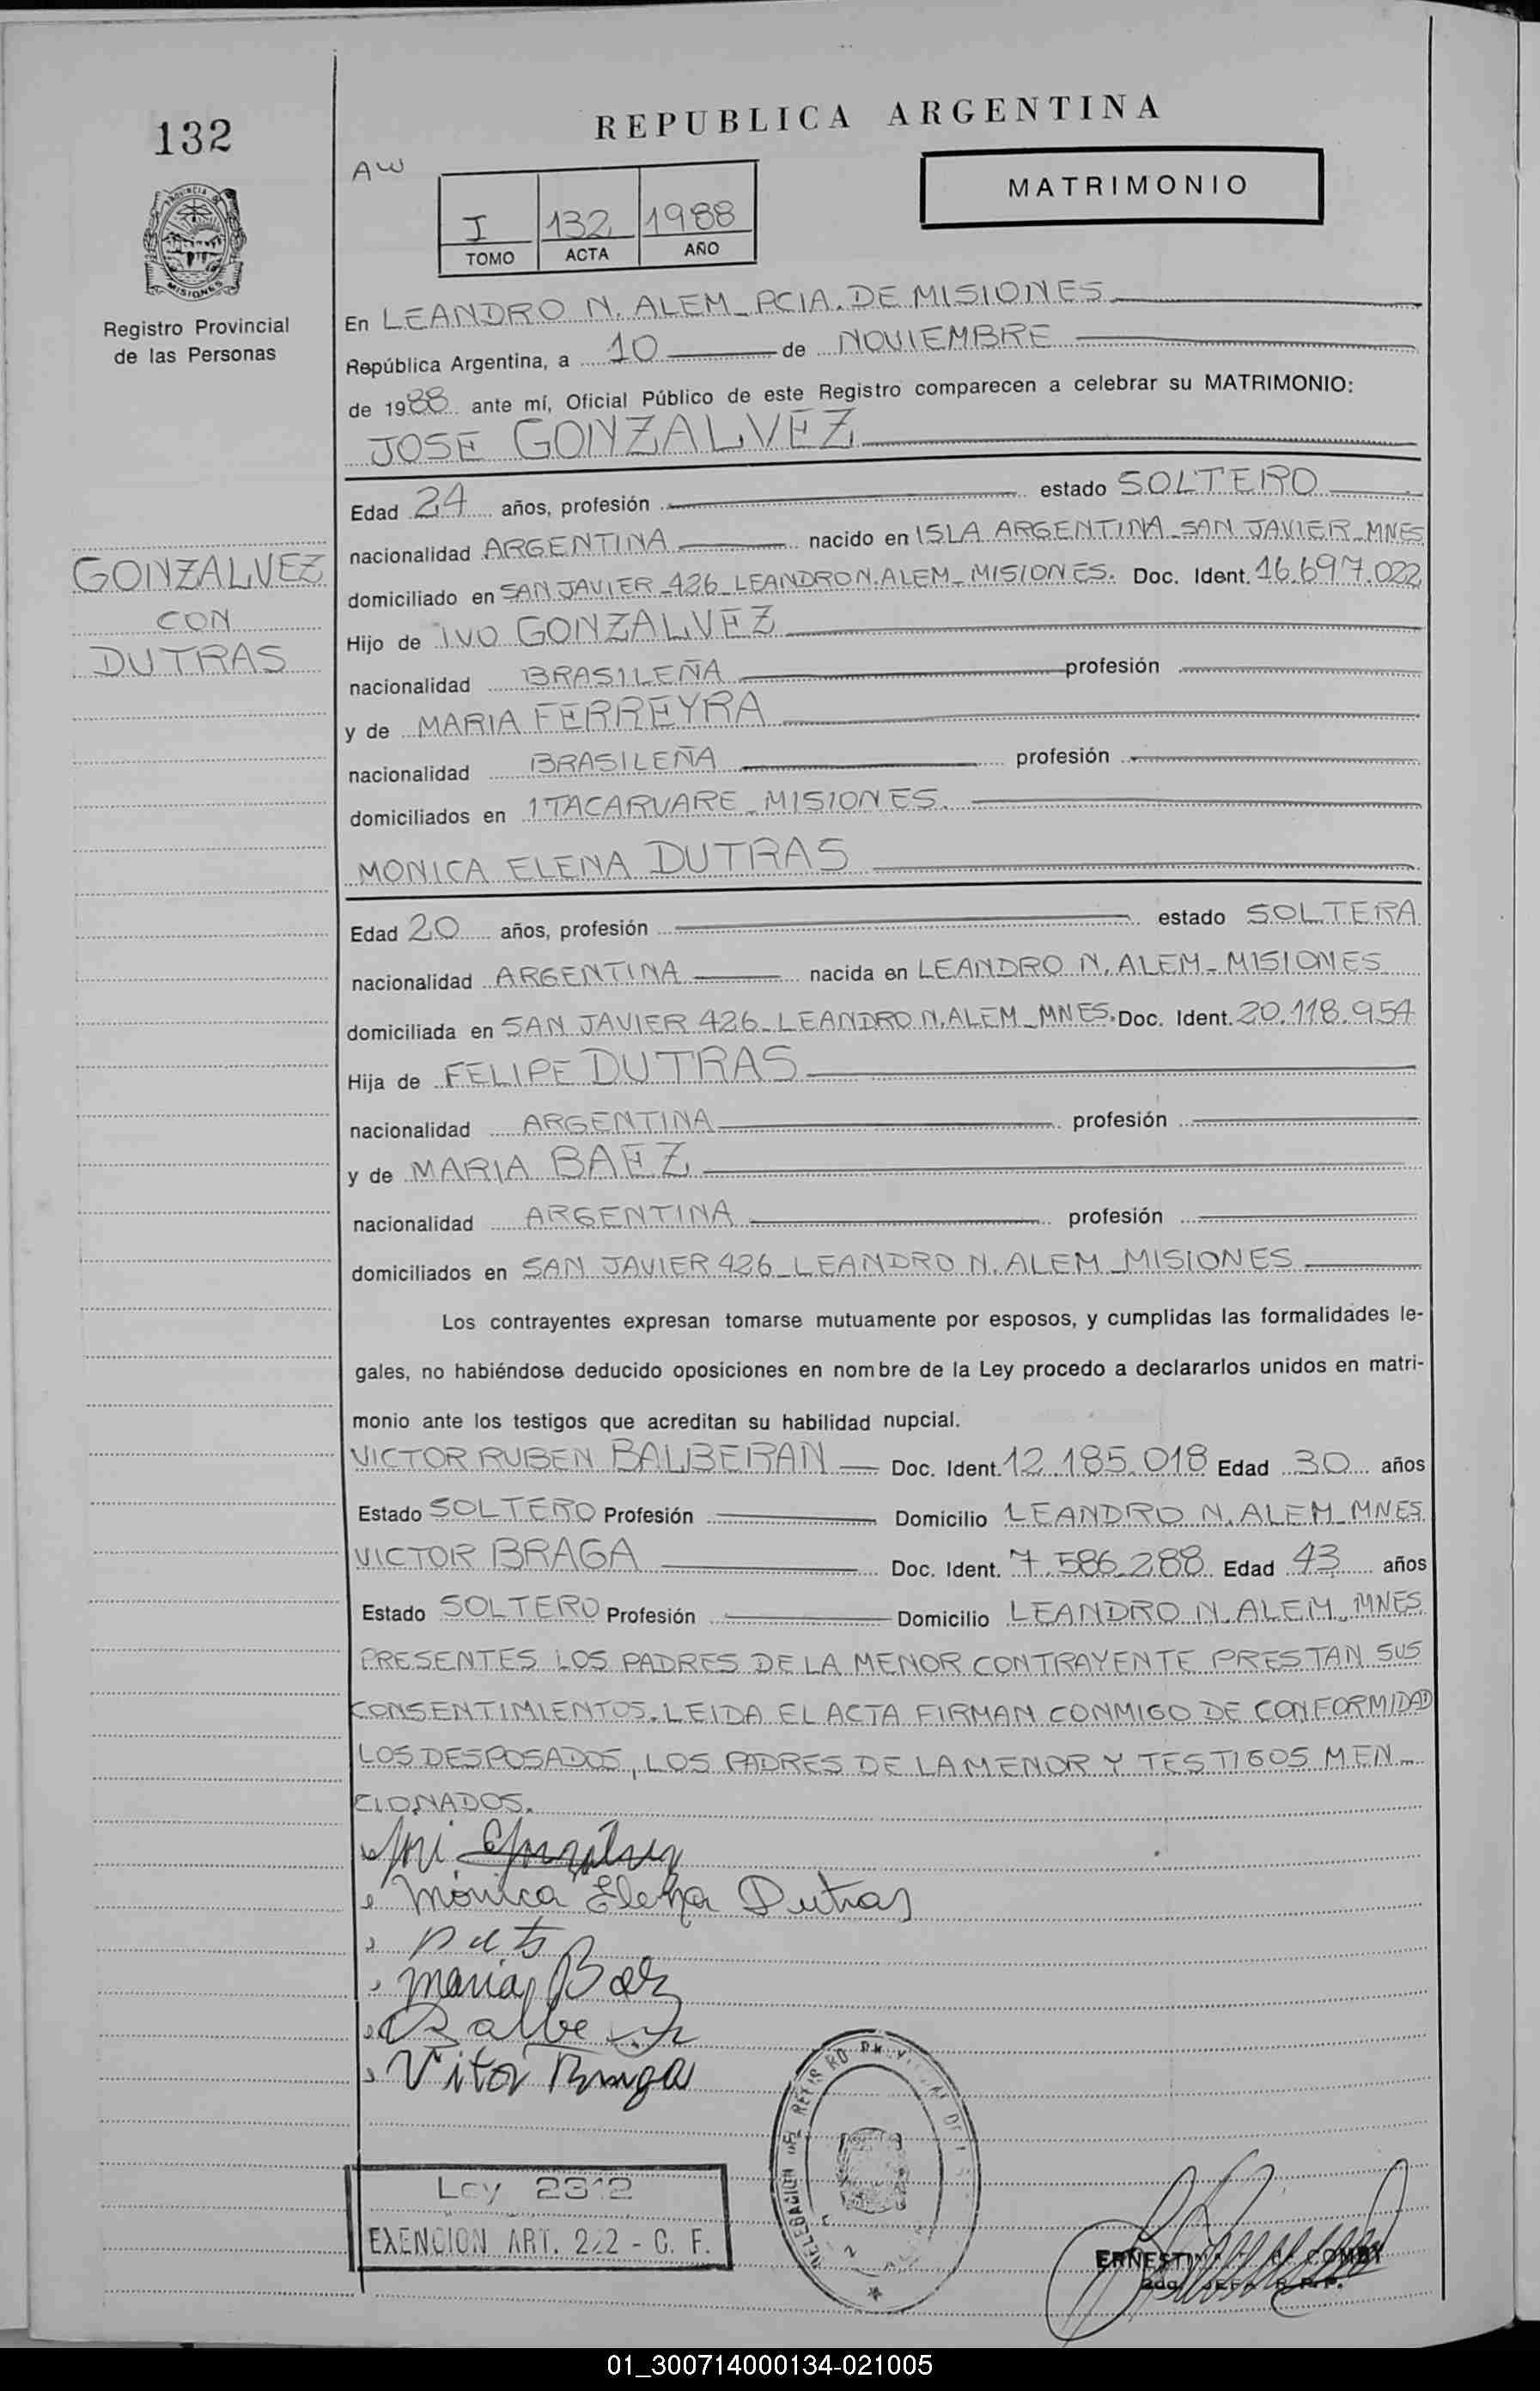 132
REPUBLICA ARGENTINA
AW
MATRIMONIO
I 132 1988
TOMO ACTA AÑO
PROVINCIA DE
MISIONES
Registro Provincial
de las Personas
En LEANDRO N. ALEM_PCIA. DE MISIONES
República Argentina, a 10 de NOVIEMBRE
de 1988 ante mí, Oficial Público de este Registro comparecen a celebrar su MATRIMONIO:
JOSE GONZALVEZ
Edad 24 años, profesión estado SOLTERO
nacionalidad ARGENTINA nacido en ISLA ARGENTINA_SAN JAVIER_MNES
domiciliado en SAN JAVIER_426_LEANDRO N. ALEM_MISIONES. Doc. Ident. 16.697.022
Hijo de IVO GONZALVEZ
nacionalidad BRASILEÑA profesión
y de MARIA FERREYRA
nacionalidad BRASILEÑA profesión
domiciliados en ITACARUARE_MISIONES.
GONZALVEZ
CON
DUTRAS
MONICA ELENA DUTRAS
Edad 20 años, profesión estado SOLTERA
nacionalidad ARGENTINA nacida en LEANDRO N. ALEM_MISIONES
domiciliada en SAN JAVIER 426_LEANDRO N. ALEM_MNES. Doc. Ident. 20.118.954
Hija de FELIPE DUTRAS
nacionalidad ARGENTINA profesión
y de MARIA BAEZ
nacionalidad ARGENTINA profesión
domiciliados en SAN JAVIER 426_LEANDRO N. ALEM_MISIONES
Los contrayentes expresan tomarse mutuamente por esposos, y cumplidas las formalidades le-
gales, no habiéndose deducido oposiciones en nombre de la Ley procedo a declararlos unidos en matri-
monio ante los testigos que acreditan su habilidad nupcial.
VICTOR RUBEN BALBERAN Doc. Ident. 12.185.018 Edad 30 años
Estado SOLTERO Profesión Domicilio LEANDRO N. ALEM_MNES
VICTOR BRAGA Doc. Ident. 7.586.288 Edad 43 años
Estado SOLTERO Profesión Domicilio LEANDRO N. ALEM_MNES
PRESENTES LOS PADRES DE LA MENOR CONTRAYENTE PRESTAN SUS
CONSENTIMIENTOS. LEIDA EL ACTA FIRMAN CONMIGO DE CONFORMIDAD
LOS DESPOSADOS, LOS PADRES DE LA MENOR Y TESTIGOS MEN_
CIONADOS.
Monica Elena Dutras
Maria Baez
Vitor Braga
DELEGACION DEL REGISTRO
Ley 2312
EXENCION ART. 222 - C. F.
01_300714000134-021005